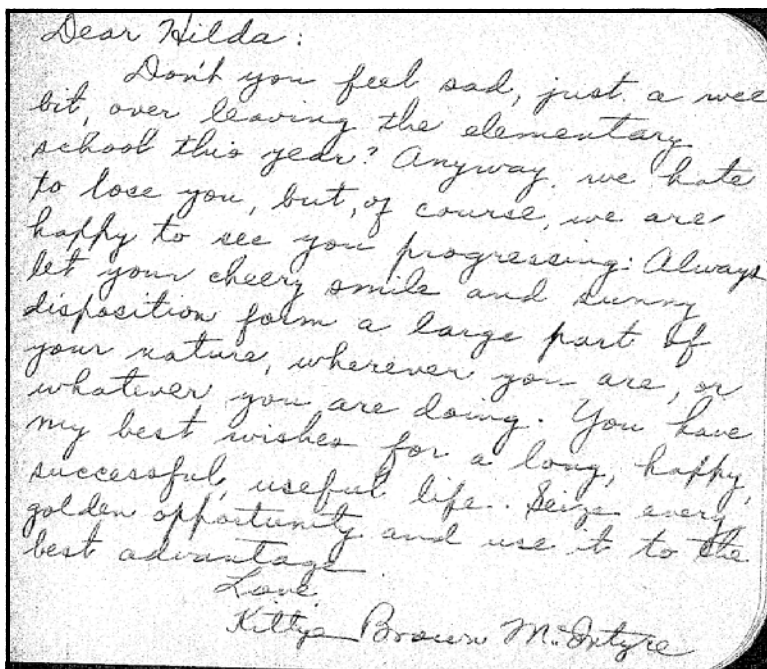 Dear Hilda:
Don't you feel sad, just a wee
bit, over leaving the elementary
school this year? Anyway, we hate
to lose you, but, of course, we are
happy to see you progressing. Always
let your cheery smile and sunny
disposition form a large part of
your nature, wherever you are, or
whatever you are doing. You have
my best wishes for a long, happy,
successful, useful life. Seize every
golden opportunity and use it to the
best advantage.
Love
Kittye Brown McIntyre